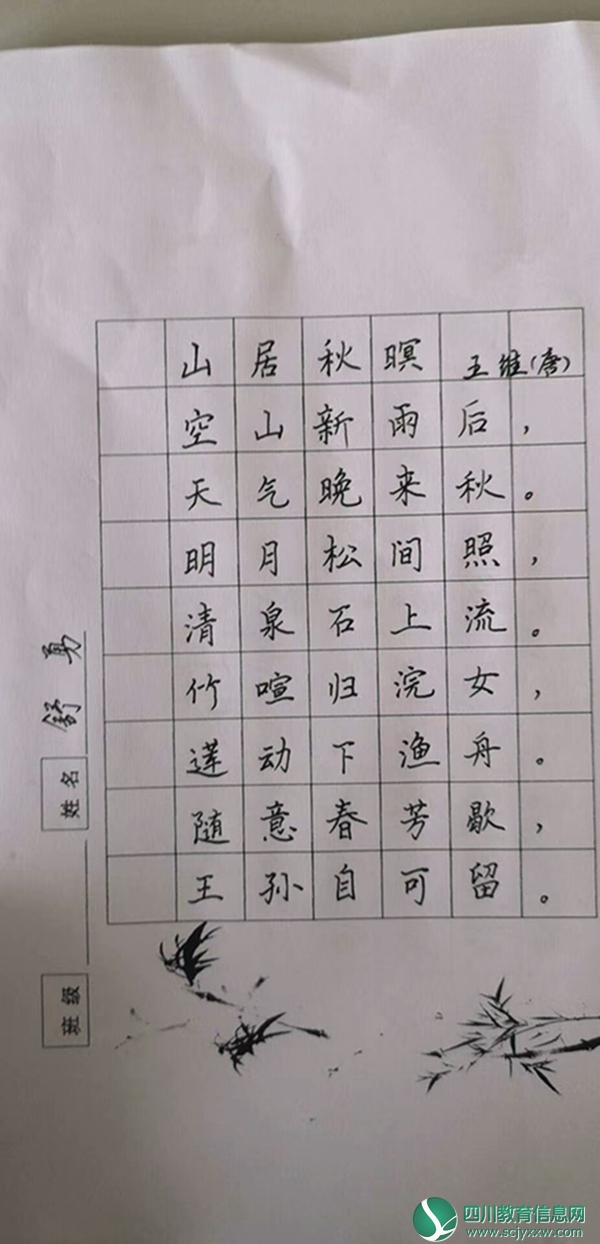 山居秋暝 王维(唐)
空山新雨后，
天气晚来秋。
明月松间照，
清泉石上流。
竹喧归浣女，
莲动下渔舟。
随意春芳歇，
王孙自可留。
班级
姓名 舒勇
四川教育信息网
www.scjyxxw.com